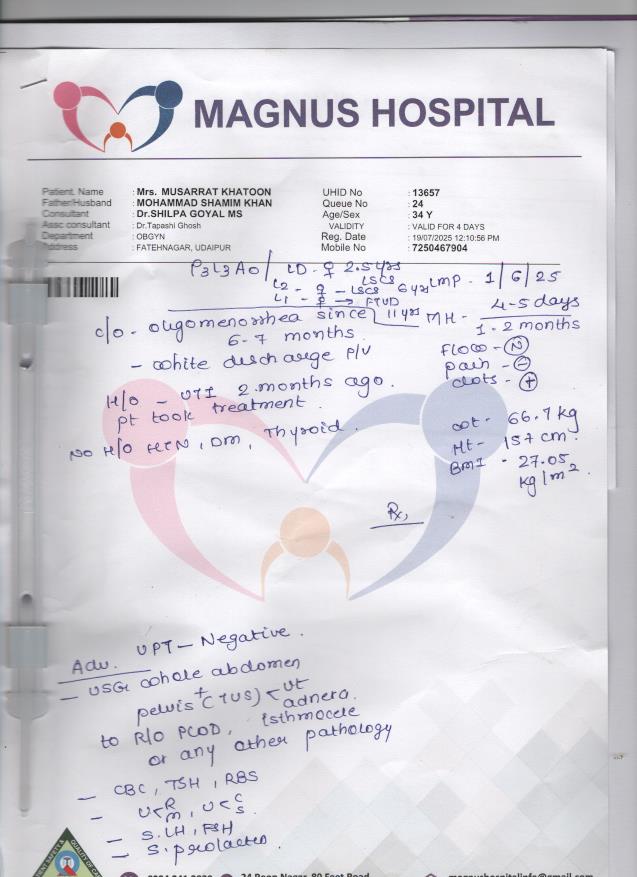 MAGNUS HOSPITAL
Patient. Name : Mrs. MUSARRAT KHATOON UHID No : 13657
Father/Husband : MOHAMMAD SHAMIM KHAN Queue No : 24
Consultant : Dr.SHILPA GOYAL MS Age/Sex : 34 Y
Assc consultant : Dr.Tapashi Ghosh VALIDITY : VALID FOR 4 DAYS
Department : OBGYN Reg. Date : 19/07/2025 12:10:56 PM
Address : FATEHNAGAR, UDAIPUR Mobile No : 7250467904
P3L3A0 / LD - ♀ 2.5 yrs LMP - 1/6/25
LSCS
L2 - ♀ - LSCS 6 yrs
L1 - ♀ → FTVD 11 yrs
MH - 4-5 days
1-2 months
c/o - oligomenorrhea since
6-7 months
- white discharge P/V
Flow - N
pain - ⊖
clots - ⊕
H/o - UTI 2 months ago.
pt took treatment.
NO H/o HTN, DM, Thyroid.
wt - 66.7 kg
Ht - 157 cm.
BMI - 27.05
kg/m2.
Rx,
UPT - Negative.
Adv.
- USG whole abdomen
pelvis + (TVS) < ut
adnexa.
to R/O PCOD, Isthmocele
or any other pathology
- CBC, TSH, RBS
- U<R M, U<C S.
- S. LH, FSH
- S. prolactin